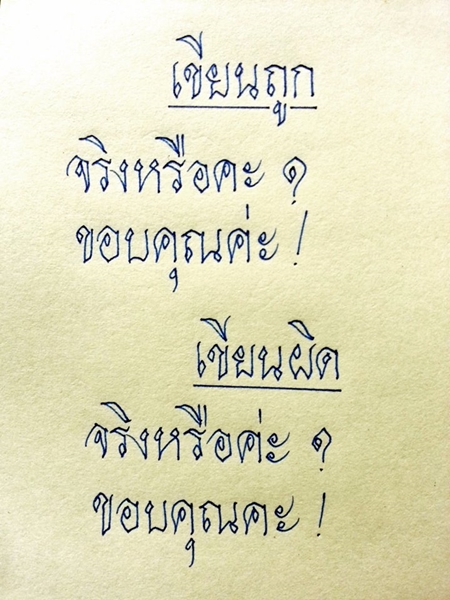 เขียนถูก
จริงหรือคะ ?
ขอบคุณค่ะ !
เขียนผิด
จริงหรือค่ะ ?
ขอบคุณคะ !